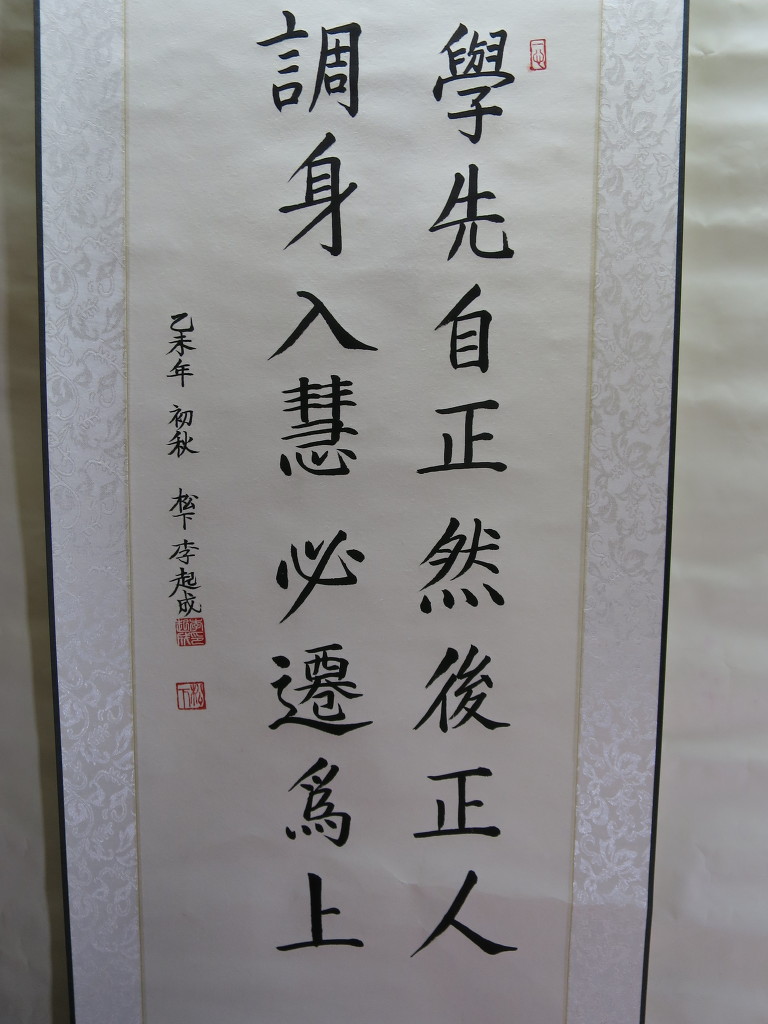 學先自正然後正人
調身入慧必遷爲上
乙未年 初秋 松下 李起成
松下